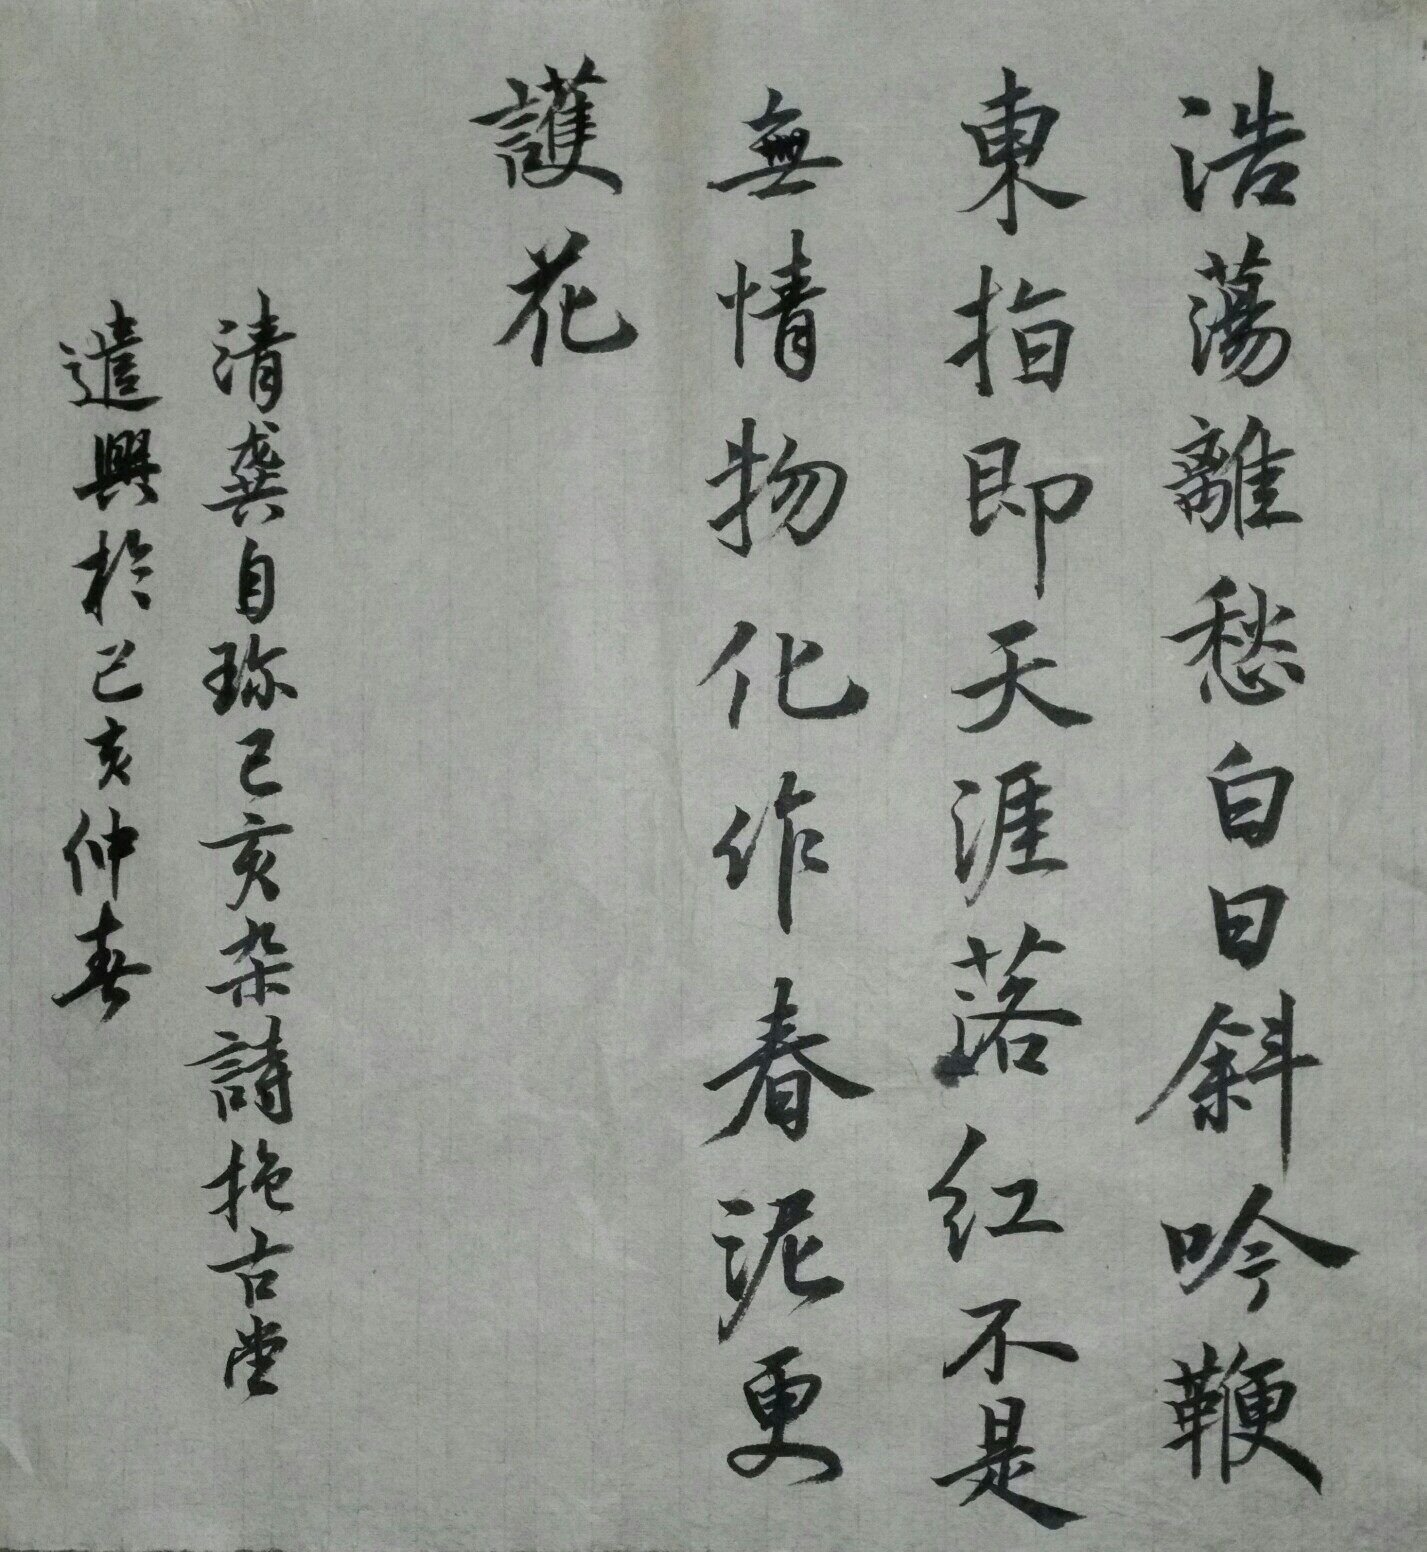 浩蕩離愁白日斜吟鞭
東指即天涯落红不是
無情物化作春泥更
護花
清龔自珍己亥杂詩抱古堂
遣興於己亥仲春